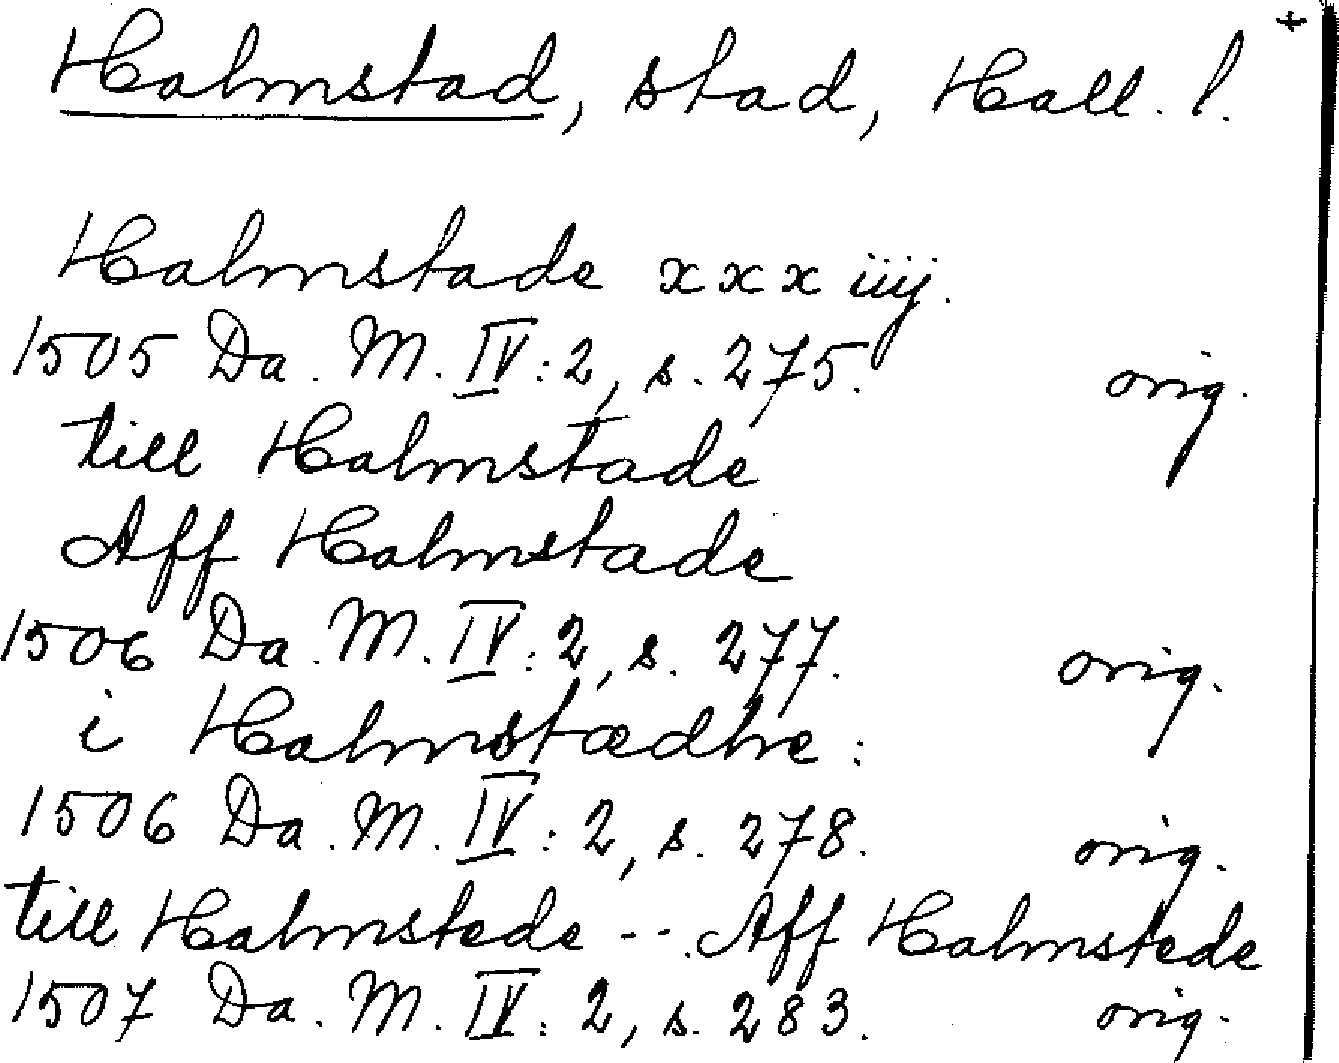 +
Halmstad, stad, Hall. l.
Halmstade xxx iiij.
1505 Da. M. IV: 2, s. 275. orig.
till Halmstade
Aff Halmstade
1506 Da. M. IV: 2, s. 277. orig.
i Halmstædhe:
1506 Da. M. IV: 2, s. 278. orig.
till Halmstede -- Aff Halmstede
1507 Da. M. IV: 2, s. 283. orig.